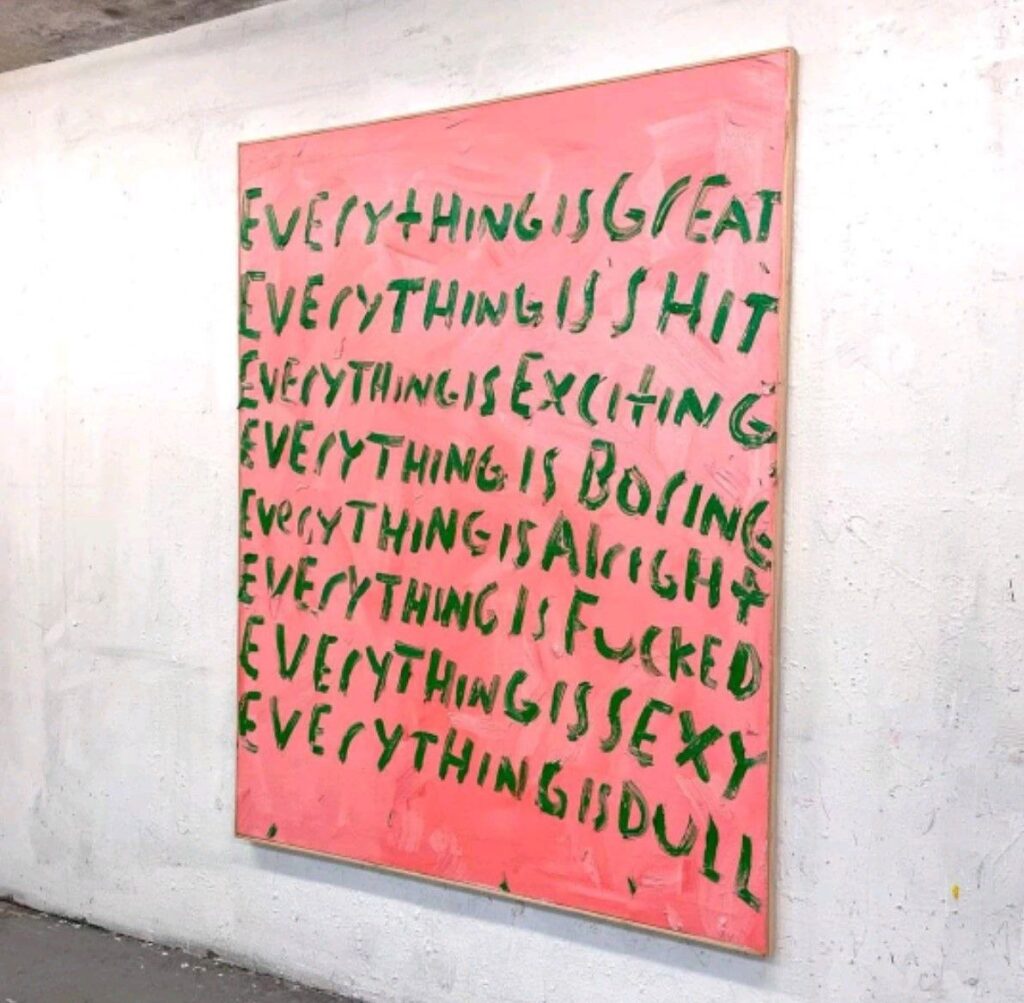 EVErY+HING IS GrEAT
EVErYTHING IS SHIT
EVErYTHiNG iS ExCitiNG
EVErYTHING IS BOrING
EVerYTHING iS AlrIGHt
EVErYTHING IS FuCKED
EVErYTHiNG IS SEXY
EVErYTHING iS DULL